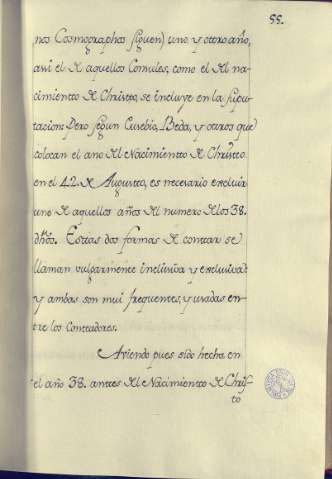 55.
nos Cosmographos siguen) uno, y otro año,
assi el de aquellos Consules, como el del na-
cimiento de Christo, se incluye en la supu-
tacion: Pero segun Eusebio, Beda, y otros que
colocan el ano del Nacimiento de Christo
en el 42. de Augusto, es necesario excluir
uno de aquellos años del numero de los 38.
dhos. Estas dos formas de contar se
llaman vulgarmente inclusiva y exclusiva
y ambas son mui frequentes, y usadas en-
tre los Contadores.
Aviendo pues sido hecha en
el año 38. antes del Nacimiento de Chris-
to